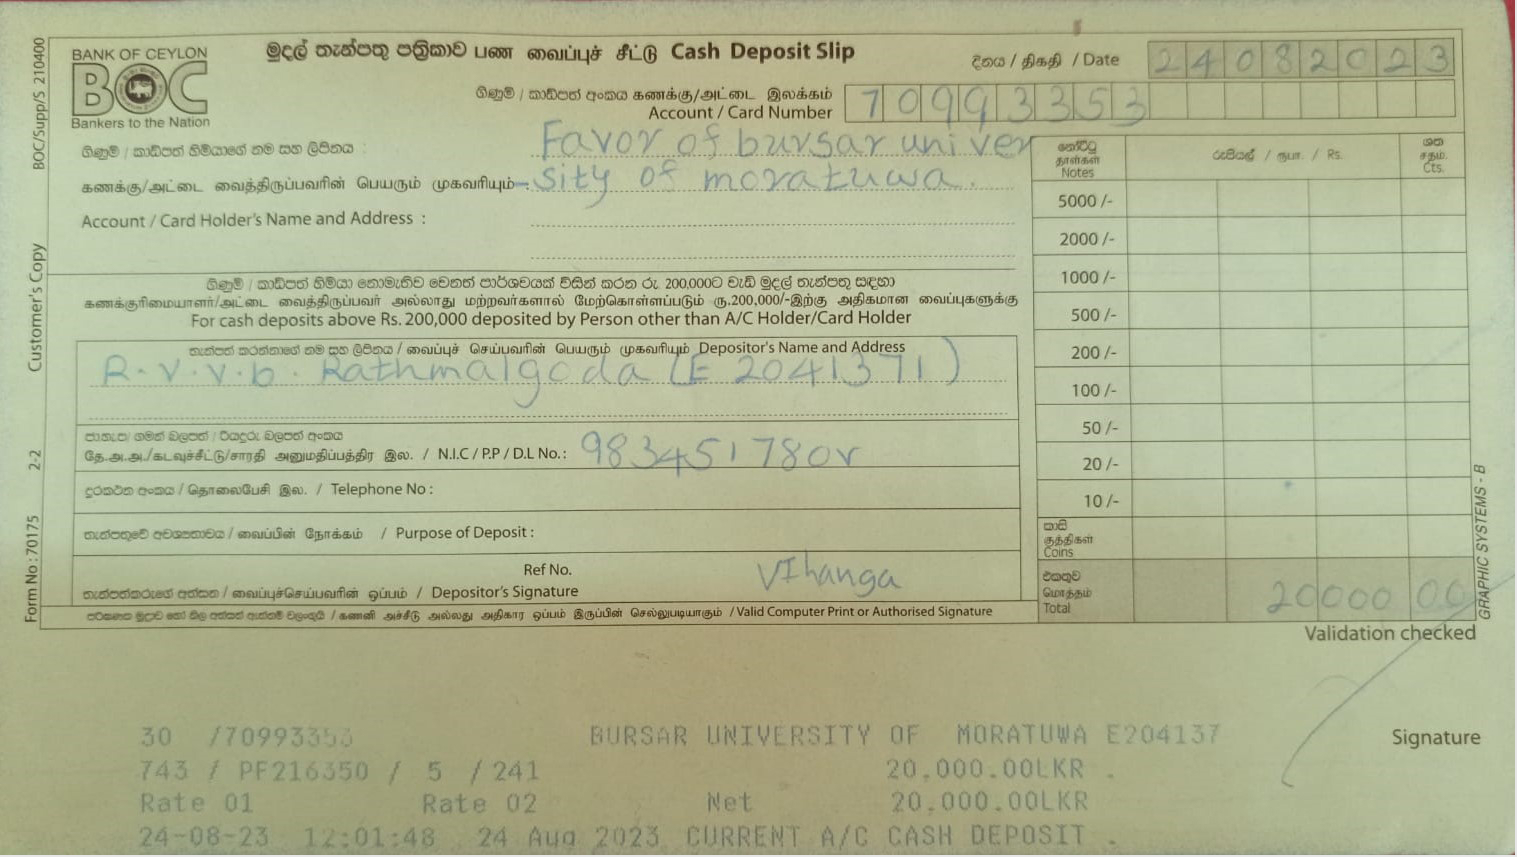 BOC/Supp/S 210400
Customer's Copy
2-2
Form No : 70175
BANK OF CEYLON
BOC
Bankers to the Nation
මුදල් තැන්පතු පත්‍රිකාව பண வைப்புச் சீட்டு Cash Deposit Slip
දිනය / திகதி / Date 24082023
ගිණුම් / කාඩ්පත් අංකය கணக்கு/அட்டை இலக்கம்
Account / Card Number 70993353
ගිණුම් / කාඩ්පත් හිමියාගේ නම සහ ලිපිනය :
Favor of bursar univer
கணக்கு/அட்டை வைத்திருப்பவரின் பெயரும் முகவரியும் -: sity of moratuwa.
Account / Card Holder's Name and Address :
ගිණුම් / කාඩ්පත් හිමියා නොමැතිව වෙනත් පාර්ශවයක් විසින් කරන රු 200,000ට වැඩි මුදල් තැන්පතු සඳහා
கணக்குரிமையாளர்/அட்டை வைத்திருப்பவர் அல்லாது மற்றவர்களால் மேற்கொள்ளப்படும் ரூ.200,000/-இற்கு அதிகமான வைப்புகளுக்கு
For cash deposits above Rs. 200,000 deposited by Person other than A/C Holder/Card Holder
තැන්පත් කරන්නාගේ නම සහ ලිපිනය / வைப்புச் செய்பவரின் பெயரும் முகவரியும் Depositor's Name and Address
R.V.V.b. Rathmalgoda (E 2041371)
ජා.හැ.ප/ ගමන් බලපත් / රියදුරු බලපත් අංකය
தே.அ.அ./கடவுச்சீட்டு/சாரதி அனுமதிப்பத்திர இல. / N.I.C / P.P / D.L No. : 983451780v
දුරකථන අංකය / தொலைபேசி இல. / Telephone No :
තැන්පතුවේ අවශ්‍යතාවය / வைப்பின் நோக்கம் / Purpose of Deposit :
Ref No.
තැන්පත්කරුගේ අත්සන / வைப்புச்செய்பவரின் ஒப்பம் / Depositor's Signature VIhanga
கணனி அச்சீடு அல்லது அதிகார ஒப்பம் இருப்பின் செல்லுபடியாகும் / Valid Computer Print or Authorised Signature
නෝට්ටු
தாள்கள்
Notes
රුපියල් / ரூபா. / Rs.
ශත
சதம்.
Cts.
5000 /-
2000 /-
1000 /-
500 /-
200 /-
100 /-
50 /-
20 /-
10 /-
කාසි
குத்திகள்
Coins
එකතුව
மொத்தம்
Total 20000 00
GRAPHIC SYSTEMS - B
Validation checked
Signature
30 /70993353 BURSAR UNIVERSITY OF MORATUWA E204137
743 / PF216350 / 5 / 241 20,000.00LKR .
Rate 01 Rate 02 Net 20,000.00LKR
24-08-23 12:01:48 24 Aug 2023 CURRENT A/C CASH DEPOSIT .